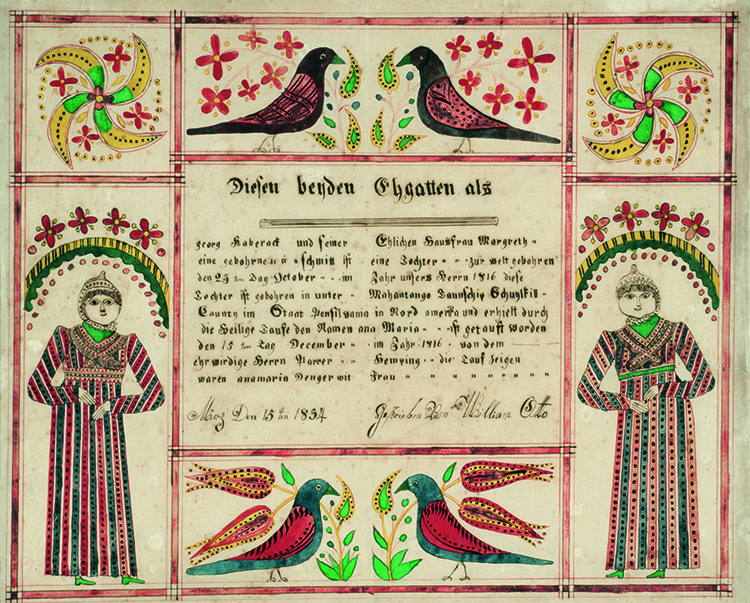 Diesen beyden Ehgatten als
georg Haberack und seiner Ehlichen Hausfrau Margreth
eine gebohrne schmitt ist eine Tochter zur welt gebohren
den 25 ten Tag October im Jahr unsers Herrn 1816 diese
Tochter ist gebohren in unter Mahantango Taunschip Schuylkil
County im Staat Pensilvania in Nord amerika und erhielt durch
die Heilige Taufe den Namen ana Maria ist getauft worden
den 15 ten Tag December im Jahr 1816 von dem
ehrwirdige Herrn Parrer die Tauf Zeigen
waren anamaria Denger wit Frau
Den 15 ten 1834 Geschrieben Von William Otto